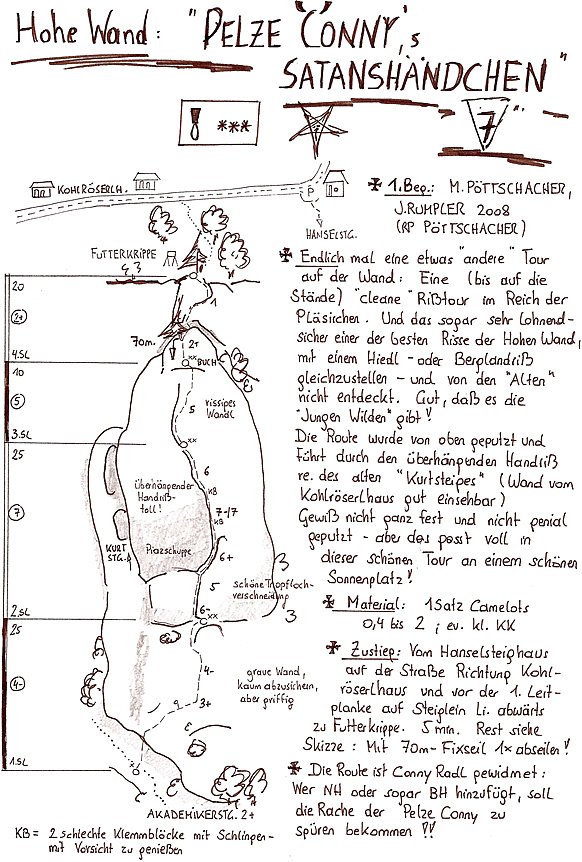 Hohe Wand: "PELZE CONNY's
SATANSHÄNDCHEN"
***
7
KOHLRÖSERLH.
P
HANSELSTG.
FUTTERKRIPPE
20
1
2+
70m.
2+
4.SL
BUCH
10
5
5
rissiges
Wandl
3.SL
25
6
KB
überhängender
Handriß-
toll!
7-/7
KB
7
KURT
STG.
Piazschuppe
6+
5
schöne Tropfloch-
verschneidung
3
6-
2.SL
3
25
4-
graue Wand,
kaum abzusichern,
aber griffig
4-
3+
1.SL
AKADEMIKERSTG. 2+
KB = 2 schlechte Klemmblöcke mit Schlingen-
mit Vorsicht zu genießen
1.Beg.: M. PÖTTSCHACHER,
J. RUMPLER 2008
(RP PÖTTSCHACHER)
Endlich mal eine etwas "andere" Tour
auf der Wand: Eine (bis auf die
Stände) "cleane" Rißtour im Reich der
Pläsirchen. Und das sogar sehr Lohnend-
sicher einer der besten Risse der Hohen Wand,
mit einem Hiedl - oder Berglandriß
gleichzustellen - und von den "Alten"
nicht entdeckt. Gut, daß es die
"Jungen Wilden" gibt!
Die Route wurde von oben geputzt und
führt durch den überhängenden Handriß
re. des alten "Kurtsteiges" (Wand vom
Kohlröserlhaus gut einsehbar)
Gewiß nicht ganz fest und nicht genial
geputzt - aber das passt voll in
dieser schönen Tour an einem schönen
Sonnenplatz!
Material: 1 Satz Camelots
0,4 bis 2 ; ev. kl. KK
Zustieg: Vom Hanselsteighaus
auf der Straße Richtung Kohl-
röserlhaus und vor der 1. Leit-
planke auf Steiglein Li. abwärts
zu Futterkrippe. 5min. Rest siehe
Skizze: Mit 70m-Fixseil 1x abseilen!
Die Route ist Conny Radl gewidmet:
Wer NH oder sogar BH hinzufügt, soll
die Rache der Pelze Conny zu
spüren bekommen !!